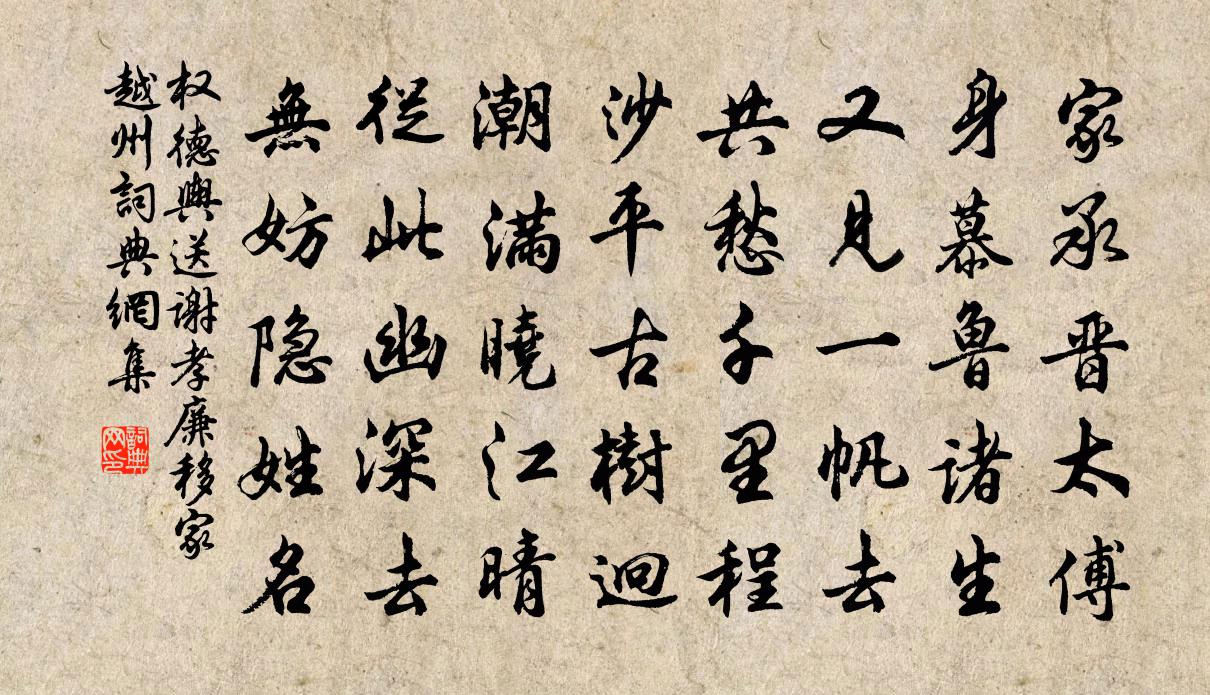 家承晋太傅
身慕鲁诸生
又见一帆去
共愁千里程
沙平古樹迥
潮滿曉江晴
從此幽深去
無妨隐姓名
权德輿送谢孝廉移家
越州詞典網集
詞典
网印